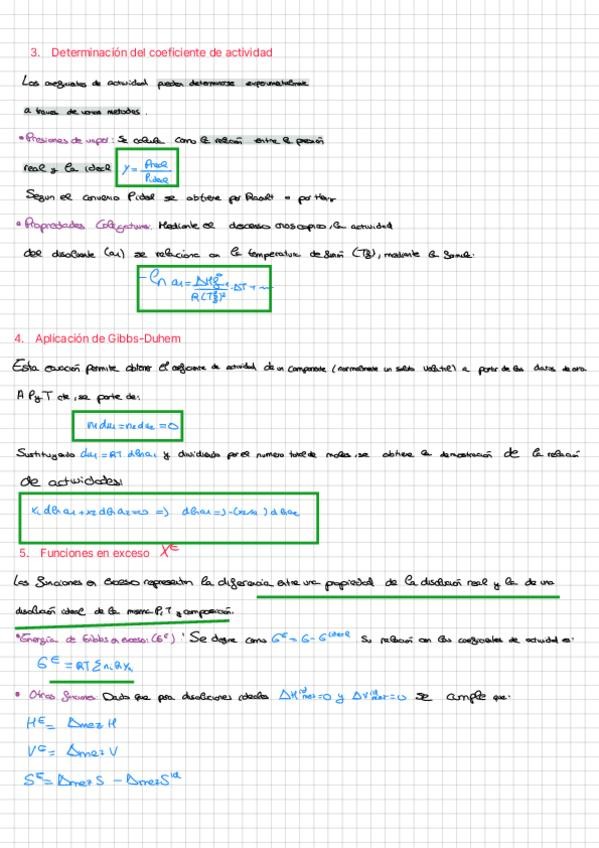 3. Determinación del coeficiente de actividad
Los coeficientes de actividad pueden determinarse experimentalmente
a traves de varios metodos.
• Presiones de vapor: Se calcula como la relación entre la presión
real y la ideal γ = Preal / Pideal
Segun el convenio Pideal se obtiene por Raoult o por Henry
• Propiedades Coligativas: Mediante el descenso crioscopico, la actividad
del disolvente (a1) se relaciona con la temperatura de fusión (Tf), mediante la formula:
- ln a1 = ΔHf / R(Tf)² · ΔT + ...
4. Aplicación de Gibbs-Duhem
Esta ecuación permite obtener el coeficiente de actividad de un componente (normalmente un soluto volatil) a partir de los datos de otro
A P y T cte, se parte de:
n1 dμ1 = n2 dμ2 = 0
Sustituyendo dμ1 = RT dlna1 y dividiendo por el numero total de moles, se obtiene la demostración de la relación
de actividades:
x1 dlna1 + x2 dlna2 = 0 => dlna1 = -(x2/x1) dlna2
5. Funciones en exceso X^E
Las funciones en exceso representan la diferencia entre una propiedad de la disolución real y la de una
disolución ideal de la misma P, T y composición.
• Energía de Gibbs en exceso (G^E): Se define como G^E = G - G^ideal Su relación con los coeficientes de actividad es:
G^E = RT Σ ni ln γi
• Otras funciones: Dado que para disoluciones ideales ΔH^id mez = 0 y ΔV^id mez = 0 se cumple que:
H^E = Δmez H
V^E = Δmez V
S^E = Δmez S - Δmez S^id